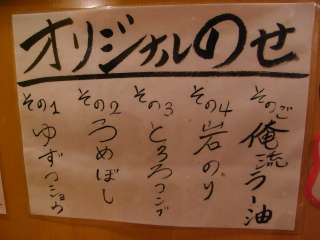 オリジナルのせ
その1 ゆずコショウ
その2 うめぼし
その3 とろろコンブ
その4 岩のり
そのご 俺流ラー油